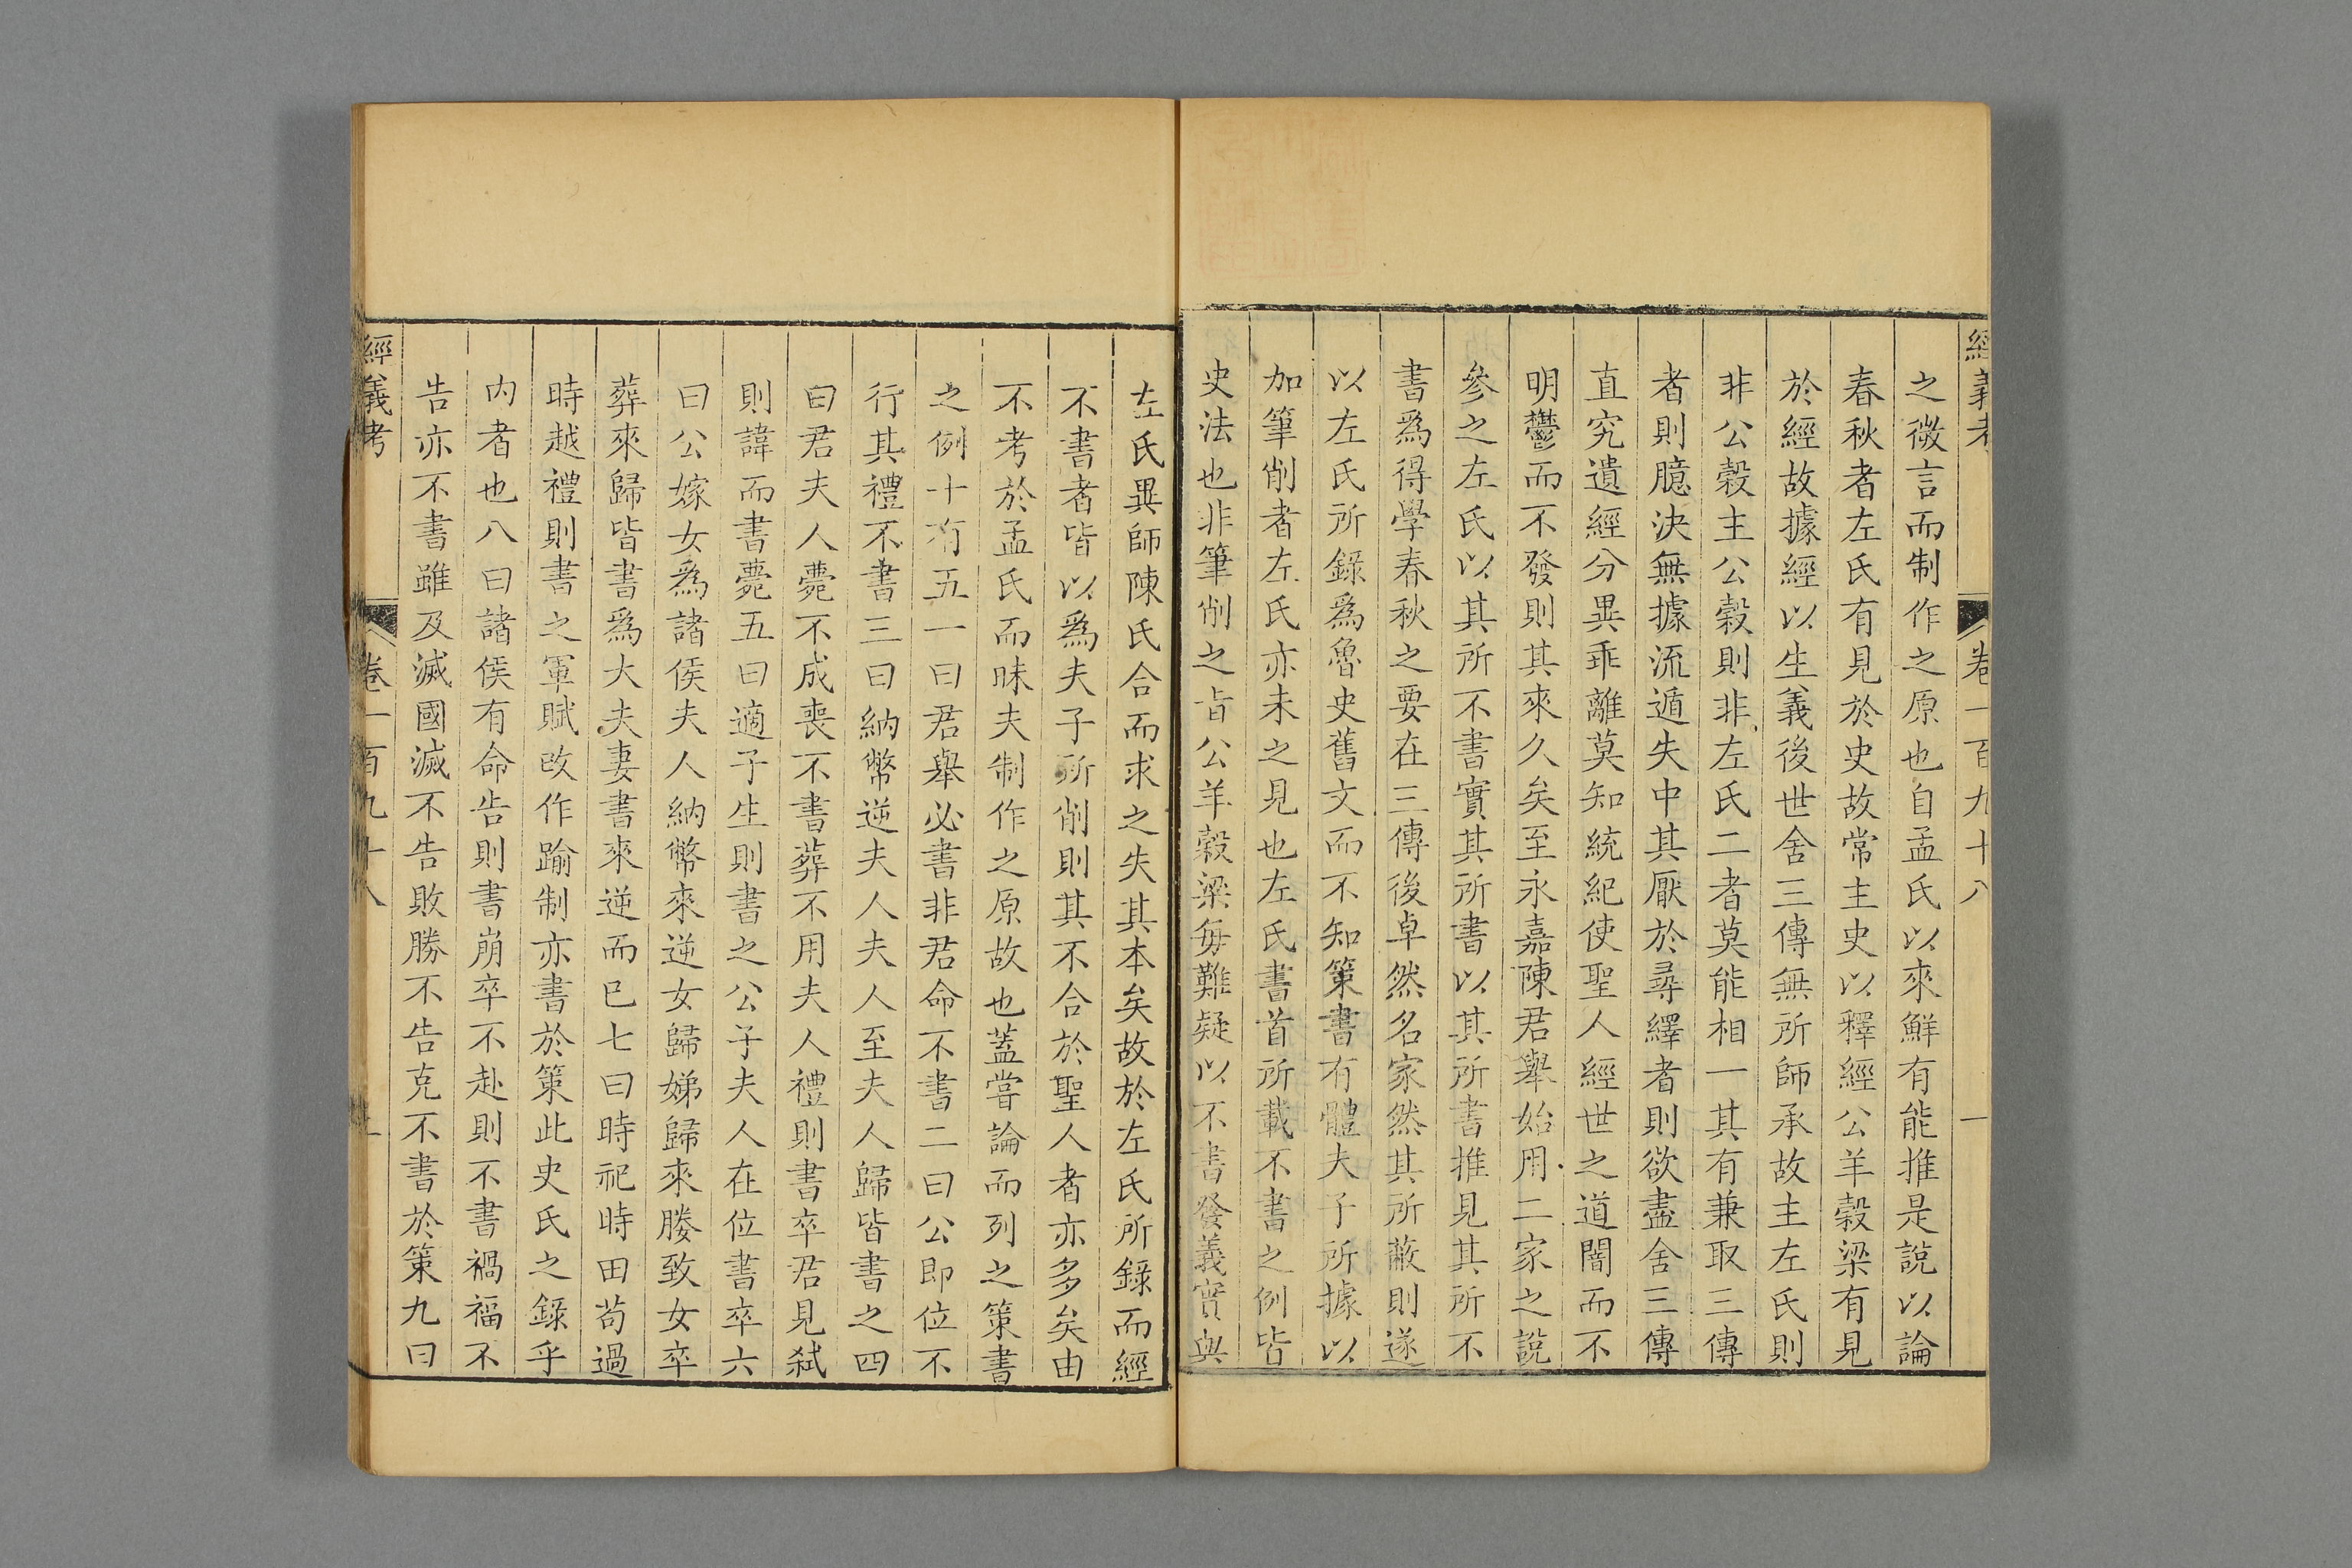 經義考 卷一百九十八 一
之微言而制作之原也自孟氏以來鮮有能推是說以論
春秋者左氏有見於史故常主史以釋經公羊穀梁有見
於經故據經以生義後世舍三傳無所師承故主左氏則
非公穀主公穀則非左氏二者莫能相一其有兼取三傳
者則臆決無據流遁失中其厭於尋繹者則欲盡舍三傳
直究遺經分異乖離莫知統紀使聖人經世之道闇而不
明鬱而不發則其來久矣至永嘉陳君舉始用二家之說
參之左氏以其所不書實其所書以其所書推見其所不
書爲得學春秋之要在三傳後卓然名家然其所蔽則遂
以左氏所錄爲魯史舊文而不知策書有體夫子所據以
加筆削者左氏亦未之見也左氏書首所載不書之例皆
史法也非筆削之旨公羊穀梁每難疑以不書發義實與
左氏異師陳氏合而求之失其本矣故於左氏所錄而經
不書者皆以爲夫子所削則其不合於聖人者亦多矣由
不考於孟氏而昧夫制作之原故也蓋嘗論而列之策書
之例十有五一曰君舉必書非君命不書二曰公即位不
行其禮不書三曰納幣逆夫人夫人至夫人歸皆書之四
曰君夫人薨不成喪不書葬不用夫人禮則書卒君見弒
則諱而書薨五曰適子生則書之公子夫人在位書卒六
曰公嫁女爲諸侯夫人納幣來逆女歸娣歸來媵致女卒
葬來歸皆書爲大夫妻書來逆而已七曰時祀時田苟過
時越禮則書之軍賦改作踰制亦書於策此史氏之錄乎
內者也八曰諸侯有命告則書崩卒不赴則不書禍福不
告亦不書雖及滅國滅不告敗勝不告克不書於策九曰
經義考 卷一百九十八